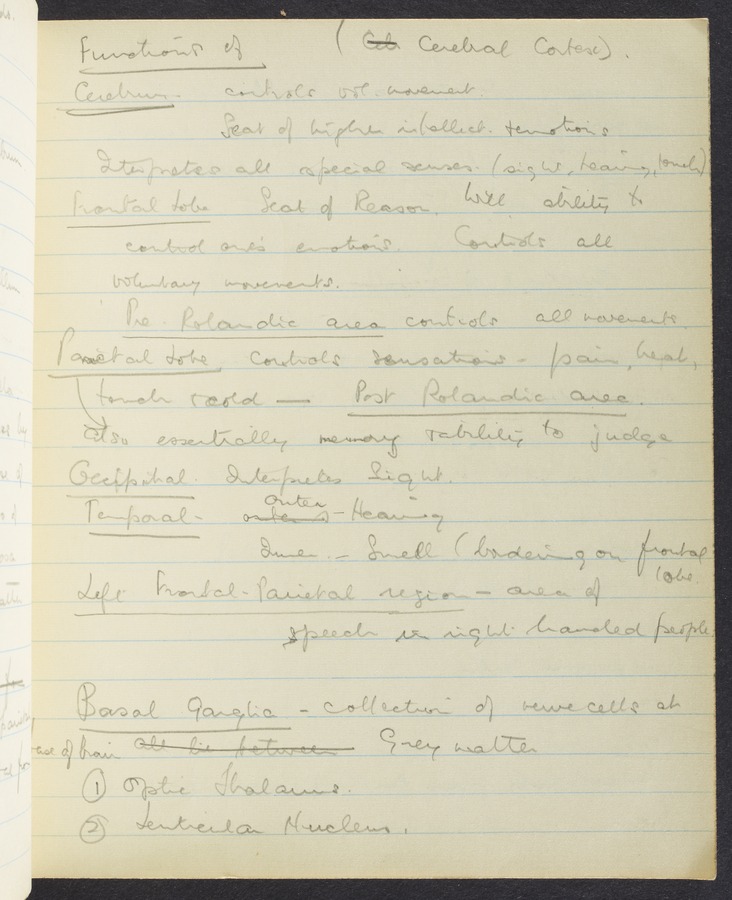 Functions of ( Cerebral Cortex).
Cerebrum. controls vol. movement.
Seat of higher intellect. + emotions
Interpretes all special senses. (sight, hearing, touch)
Frontal lobe Seat of Reason. Will ability to
control one's emotions. Controls all
voluntary movements.
Pre Rolandic area controls all movements.
Parietal lobe Controls sensations - pain, heat,
touch + cold — Post Rolandic area.
also essentially memory + ability to judge
Occipital. Interpretes Sight.
outer
Temporal - - Hearing
Inner. - Smell (bordering on frontal
lobe.
Left Frontal-Parietal region - area of
speech in right handed people
Basal Ganglia - collection of nerve cells at
base of brain all lie between Grey matter
① Optic Thalamus.
② Lenticular Nucleus.